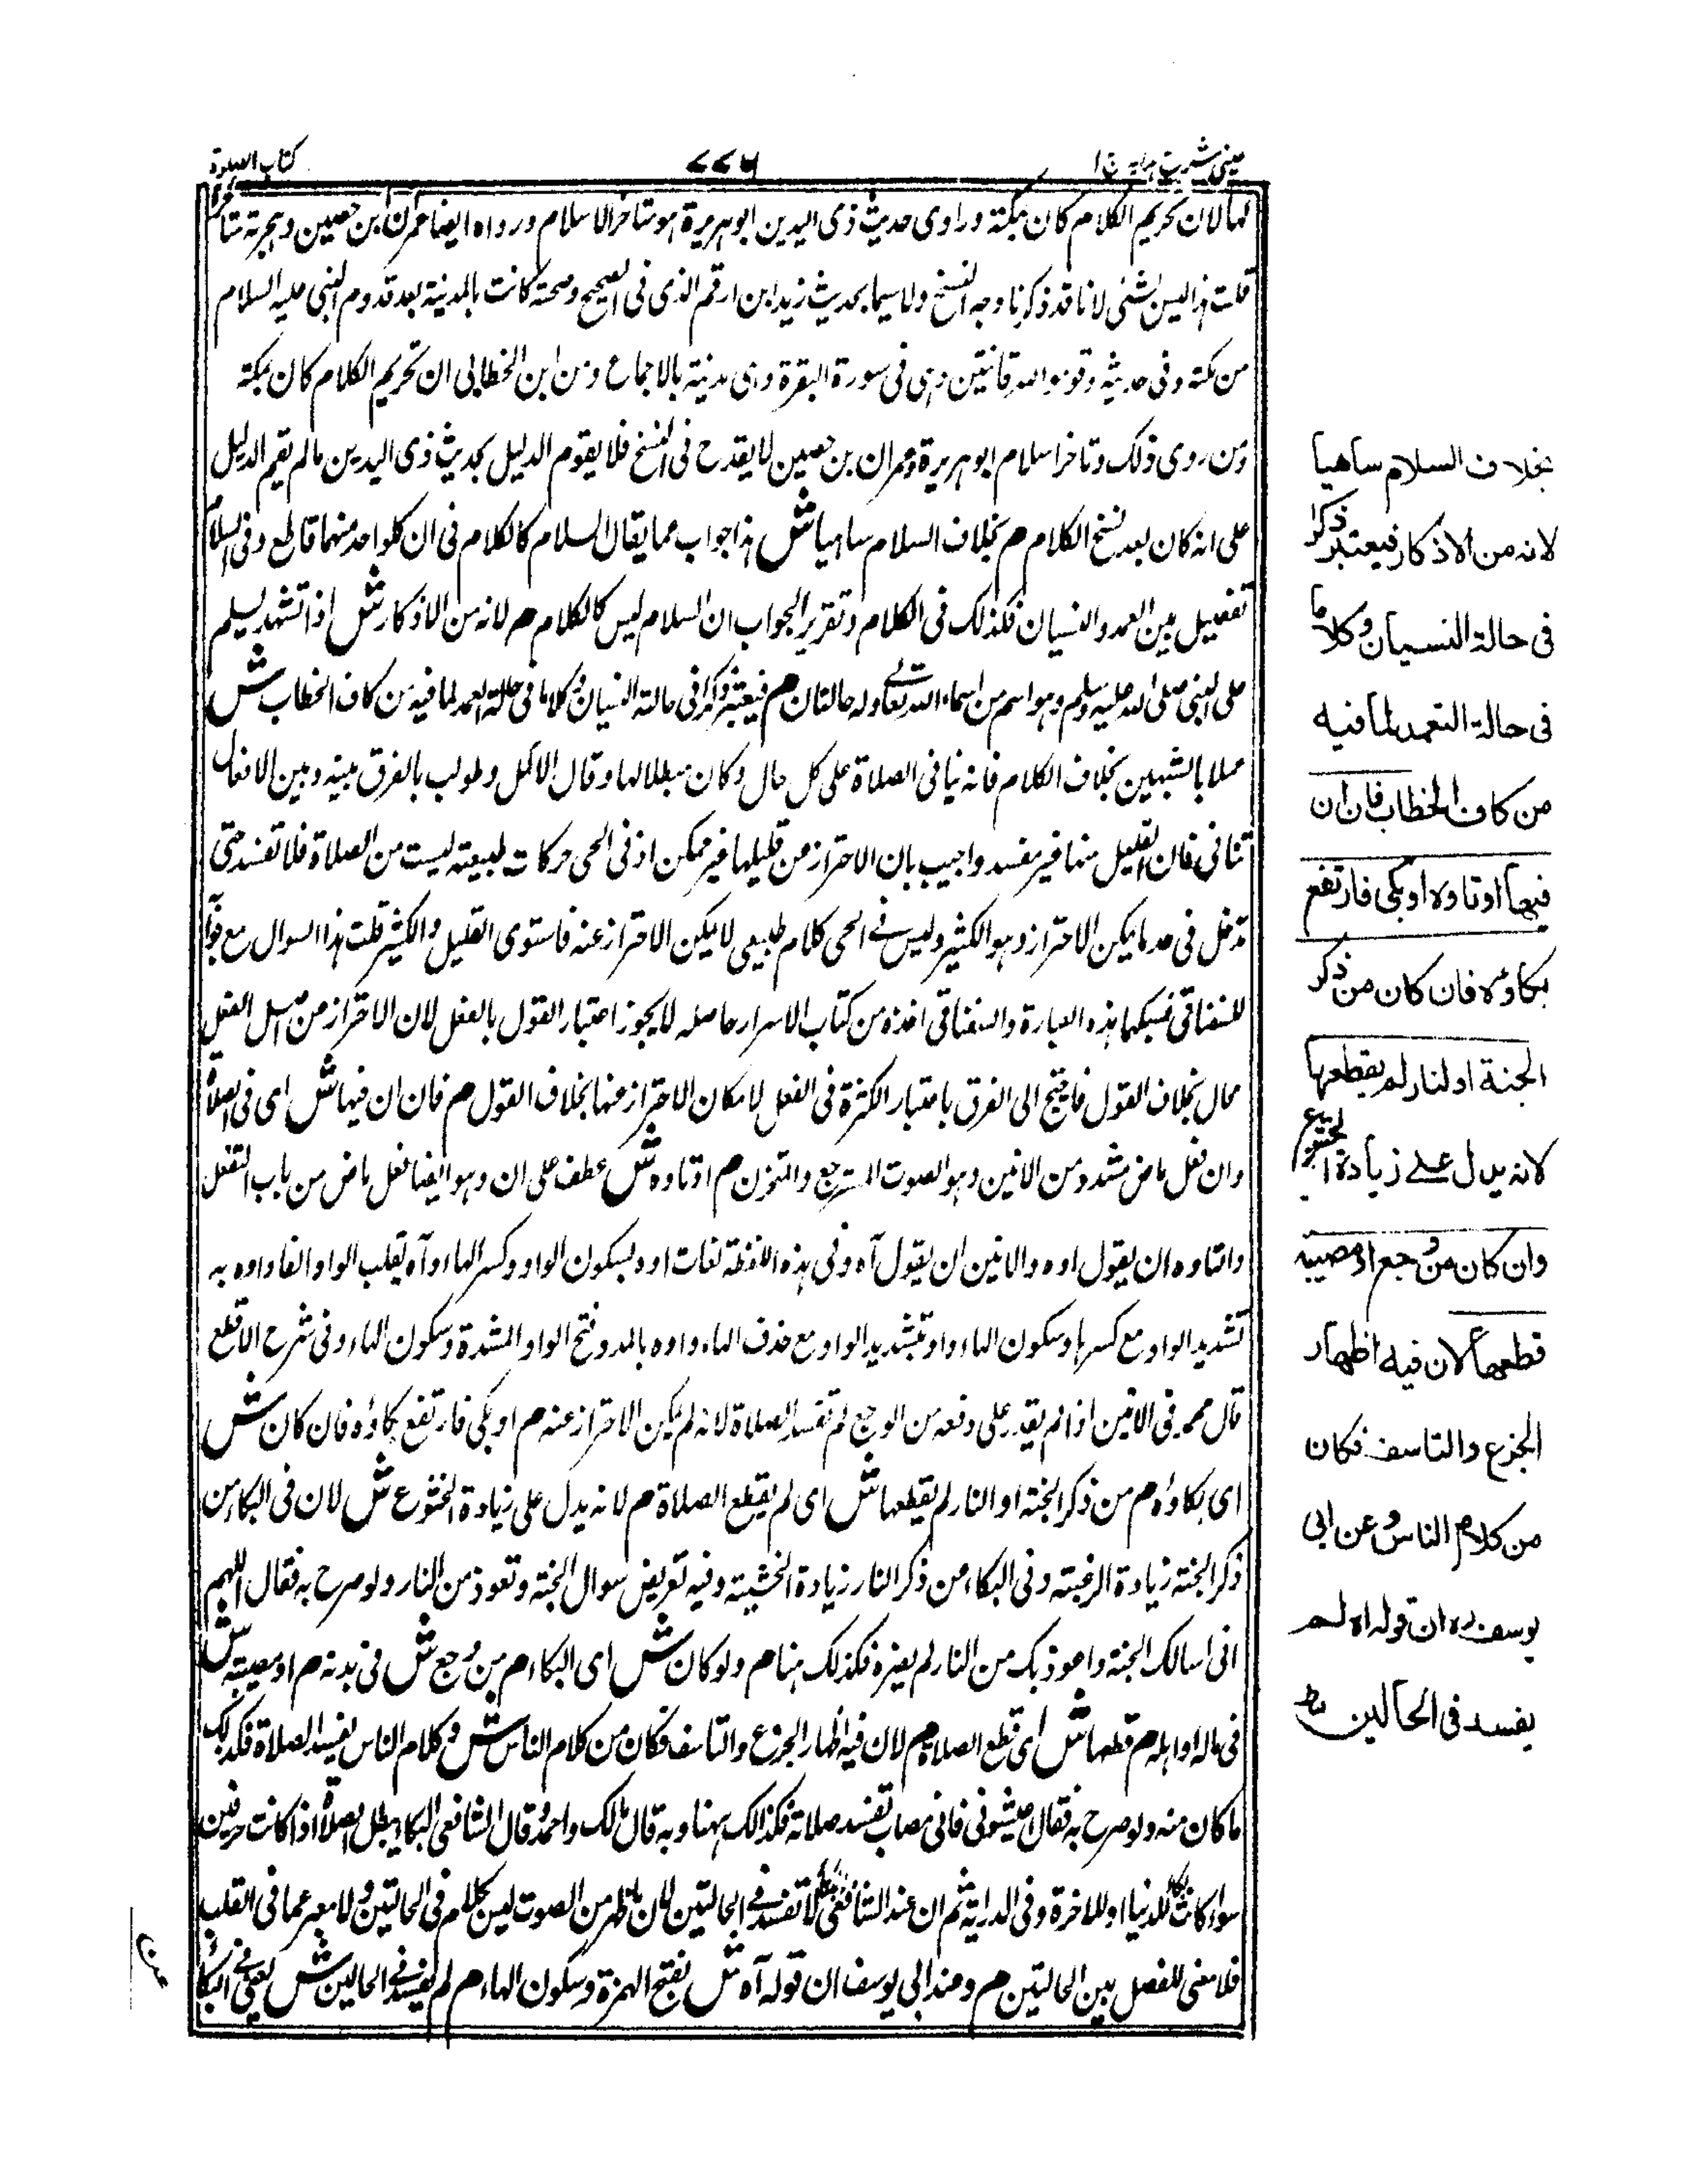 عینی شرح ہدایہ ج ا
٧٧٦
کتاب الصلوة
لها لان تحریم الکلام کان بمکة وراوی حدیث ذی الیدین ابو ہریرة ہو متاخر الاسلام ورواہ ایضا عمران ابن حصین وہجرتہ متاخرة
قلت ہذا لیس بشئی لانا قد ذکرنا وجہ النسخ ولا سیما بحدیث زید ابن ارقم الذی فی الصحیح وصحتہ کانت بالمدینة بعد قدوم النبی علیہ السلام
من مکة وفی حدیثہ وقوموا للہ قانتین وہی فی سورة البقرة وہی مدنیة بالاجماع ومن ابن الخطابی ان تحریم الکلام کان بمکة
ومن روی ذلک وتاخر اسلام ابو ہریرة وعمران بن حصین لا یقدح فی النسخ فلا یقوم الدلیل بحدیث ذی الیدین مالم یقم الدلیل
علی انہ کان بعد نسخ الکلام م بخلاف السلام ساہیا ش ہذا جواب عما یقال السلام کالکلام فی ان کلواحد منہما قاطع وفی السلام
تفصیل بین العمد والنسیان فکذلک فی الکلام وتقریر الجواب ان السلام لیس کالکلام م لانہ من الاذکار ش اذا تشہد یسلم
علی النبی صلی اللہ علیہ وسلم وہو اسم من اسماء اللہ تعالے ولہ حالتان م فیعتبر ذکرا فی حالة النسیان وکلاما فی حالة العمد لما فیہ من کاف الخطاب ش
عملا بالشبہین بخلاف الکلام فانہ ینافی الصلاة علی کل حال وکان مبطلا لہا وقال الاکمل وطولب بالفرق بینہ وبین الافعال
تنافی فان القلیل منہا غیر مفسد واجیب بان الاحتراز من قلیلہا غیر ممکن اذ فی الحی حرکات طبیعیة لیست من الصلاة فلا تفسد حتی
تدخل فی حد ما یمکن الاحتراز وہو الکثیر ولیس فے الحی کلام طبیعی لا یمکن الاحتراز عنہ فاستوی القلیل والکثیر قلت ہذا السوال مع جوابہ
للسغناقی فسبکہا بہذہ العبارة والسغناقی اخذہ من کتاب الاسرار حاصلہ لا یجوز اعتبار القول بالفعل لان الاحتراز من اصل الفعل
محال بخلاف القول فاحتیج الی الفرق باعتبار الکثرة فی الفعل لامکان الاحتراز عنہا بخلاف القول م فان ان فیہا ش ای فی الصلاة
وان فعل ماض مشدد من الانین وہو الصوت المسترجع والتحزن م او تاوہ ش عطف علی ان وہو ایضا فعل ماض من باب التفعل
والتاوہ ان یقول اوہ والانین ان یقول آہ وفی ہذہ اللفظة لغات اوہ بسکون الواو وکسر الہاء وآہ بقلب الواو الفا واوہ بہ
تشدید الواو مع کسرہا وسکون الہاء واو بتشدید الواو مع حذف الہاء واوہ بالمد وفتح الواو المشددة وسکون الہاء وفی شرح الاقطع
قال محمد فی الانین اذا لم یقدر علی دفعہ من الوجع لم تفسد الصلاة لانہ لم یکن الاحتراز عنہ م او بکی فارتفع بکاؤہ فان کان ش
ای بکاؤہ م من ذکر الجنة او النار لم یقطعہا ش ای لم یقطع الصلاة م لانہ یدل علی زیادة الخشوع ش لان فی البکاء من
ذکر الجنة زیادة الرغبة وفی البکاء من ذکر النار زیادة الخشیة وفیہ تعریض سوال الجنة وتعوذ من النار ولو صرح بہ فقال اللہم
انی اسالک الجنة واعوذ بک من النار لم یضرہ فکذلک ہنا م ولو کان ش ای البکاء م من وجع ش فی بدنہ م او مصیبة ش
فی مالہ او اہلہ م قطعہا ش ای قطع الصلاة م لان فیہ اظہار الجزع والتاسف فکان من کلام الناس ش وکلام الناس یفسد الصلاة فکذلک
ما کان منہ ولو صرح بہ فقال اعیشونی فانی مصاب تفسد صلاتہ فکذلک ہہنا وبہ قال مالک واحمد وقال الشافعی البکاء یبطل الصلاة اذا کانت حرفین
سواء کانت للدنیا او للاخرة وفی الدرایة ثم ان عند الشافعی لا تفسد فے الحالتین لان ما ظہر من الصوت لیس بکلام فی الحالتین ولا معبر عما فی القلب
فلا معنی للفصل بین الحالتین م وعند ابی یوسف ان قولہ آہ ش بفتح الہمزة وسکون الہاء م لم یفسد فے الحالین ش یعنی فی البکاء
بخلاف السلام ساهیا
لانه من الاذکار فیعتبر ذکرا
فی حالة النسیان وکلاما
فی حالة التعمد لما فیه
من کاف الخطاب فان ان
فیها او تاوه او بکی فارتفع
بکاؤه فان کان من ذکر
الجنة او النار لم یقطعها
لانه یدل علے زیادة الخشوع
وان کان من وجع او مصیبة
قطعها لان فیه اظهار
الجزع والتاسف فکان
من کلام الناس وعن ابی
یوسف ره ان قوله اه لم
یفسد فی الحالین